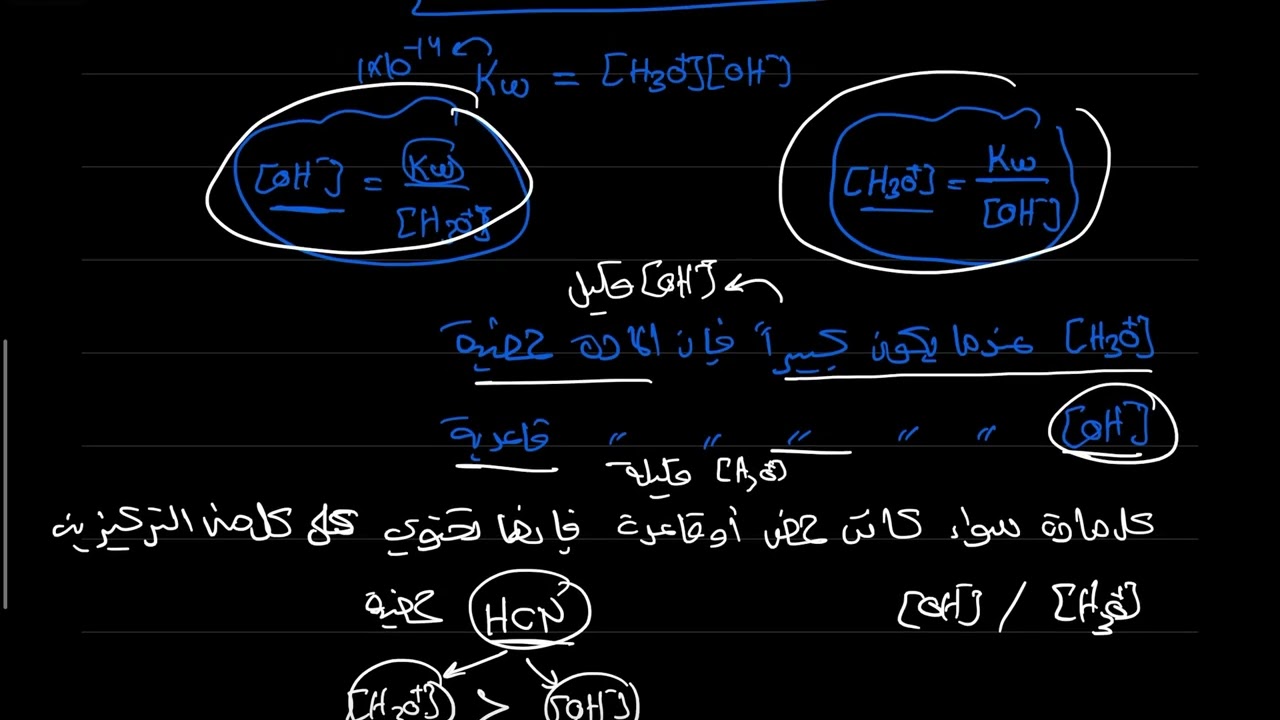 1x10⁻¹⁴
Kw = [H₃O⁺][OH⁻]
[OH⁻] = Kw / [H₃O⁺]
[H₃O⁺] = Kw / [OH⁻]
[OH⁻] قليل
[H₃O⁺] عندما يكون كبيراً فإن المادة حمضية
[OH⁻] " " " " " قاعدية
[H₃O⁺] قليلة
كل مادة سواء كانت حمض أو قاعدة فإنها تحتوي كل من التركيزين
[H₃O⁺] / [OH⁻]
HCN حمضية
[H₃O⁺] > [OH⁻]